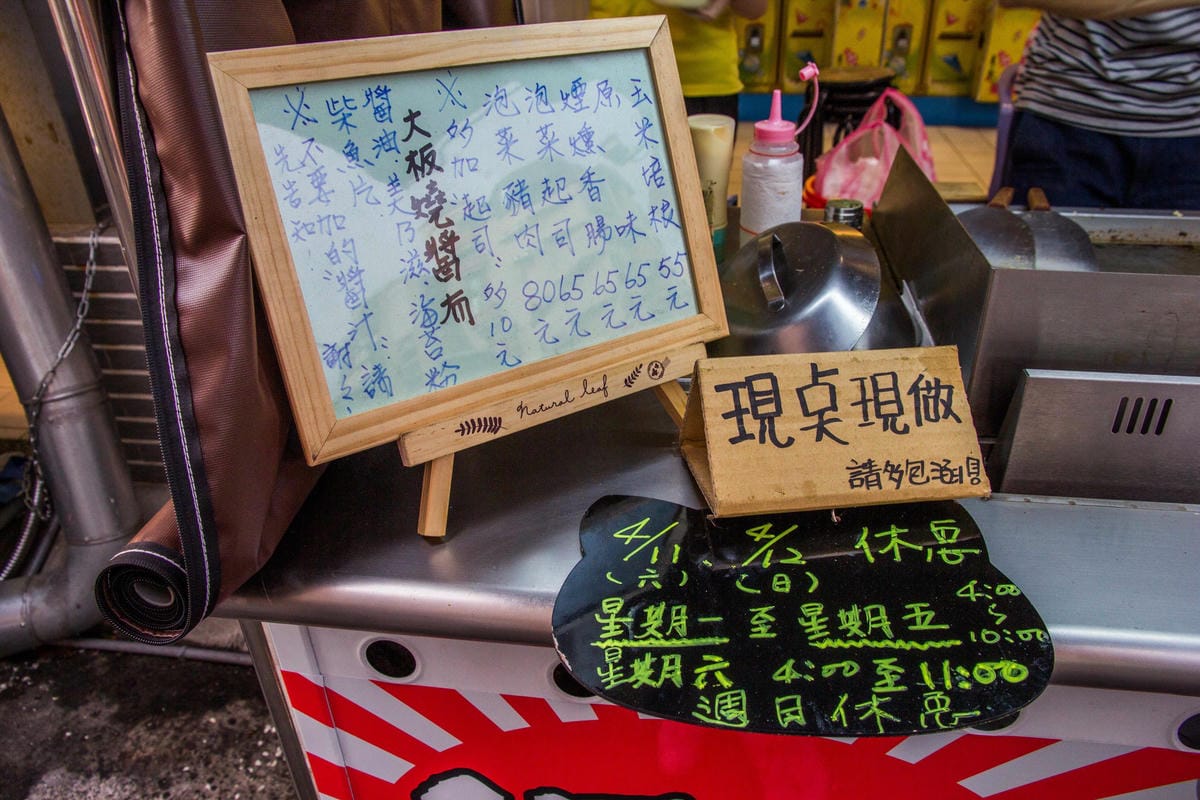 玉米培根 55元
原味 65元
煙燻香腸 65元
泡菜起司 65元
泡菜豬肉 80元
※多加起司:多10元
大板燒醬
醬油.美乃滋.海苔粉
柴魚片
※不要加的醬汁:請
先告知 謝々
natural leaf
現点現做
請多包涵
4/11、4/12 休息
(六) (日)
星期一至星期五 4:00~10:00
星期六 4:00至11:00
週日休息